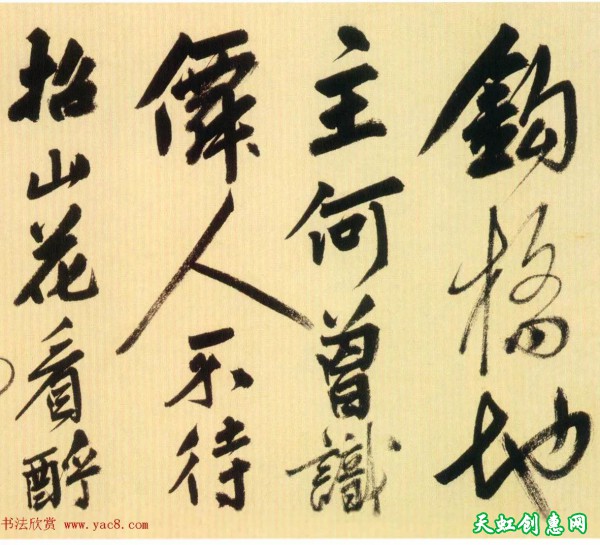 釣橋地
主何曾識
僊人不待
招山花看醉
书法欣赏 www.yac8.com
天虹创惠网